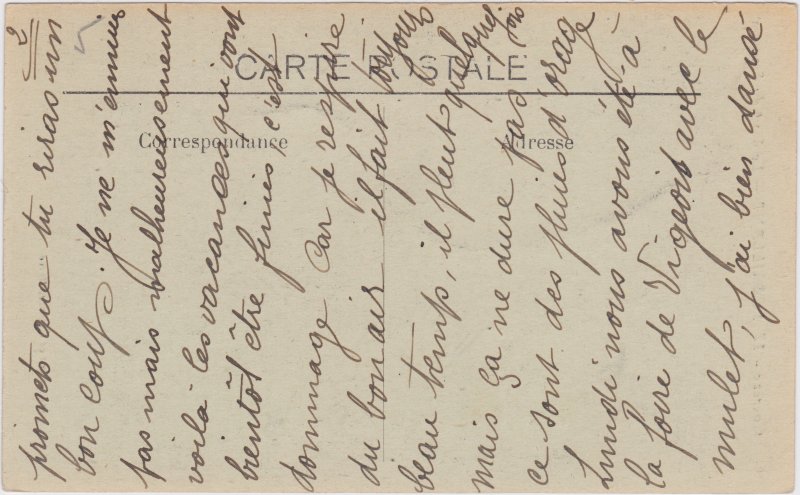 CARTE POSTALE
Correspondance
Adresse
2
promets que tu riras un
bon coup. Je ne m'ennuie
pas mais malheureusement
voilà les vacances qui vont
bientôt être finies, c'est
dommage car je respire
du bon air il fait toujours
beau temps, il pleut quelquefois
mais ça ne dure pas
ce sont des pluies d'orage
Lundi nous avons été à
la foire de Vigeois avec le
mulet, j'ai bien dansé